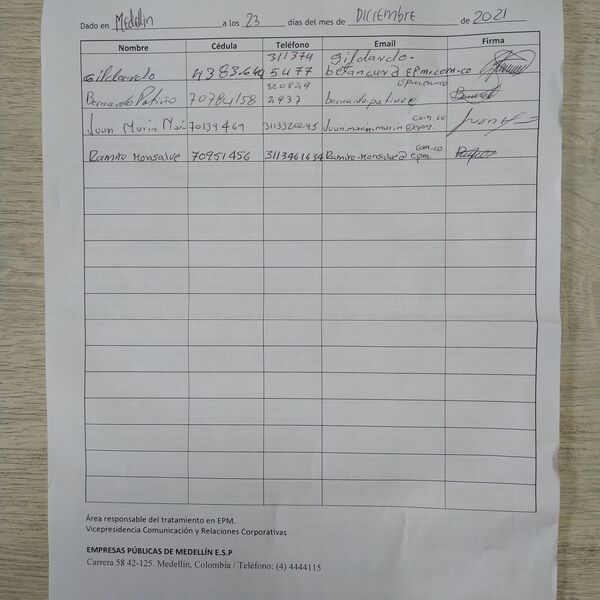 Dado en Medellin a los 23 días del mes de Diciembre de 2021
Nombre Cédula Teléfono Email Firma
311374 Gildardo.
Gildardo 5477 betancur@epm.com.co
3208249 epm.com.co
Bernardo Patiño 70784158 2937 bernardo.patino@
com.co
Juan Marin 70139469 3113320245 Juan.marin.marin@epm.
com.co
Ramiro Monsalve 70951456 3113461634 Ramiro.monsalve@epm.
Área responsable del tratamiento en EPM.
Vicepresidencia Comunicación y Relaciones Corporativas
EMPRESAS PÚBLICAS DE MEDELLÍN E.S.P
Carrera 58 42-125. Medellín, Colombia / Teléfono: (4) 4444115